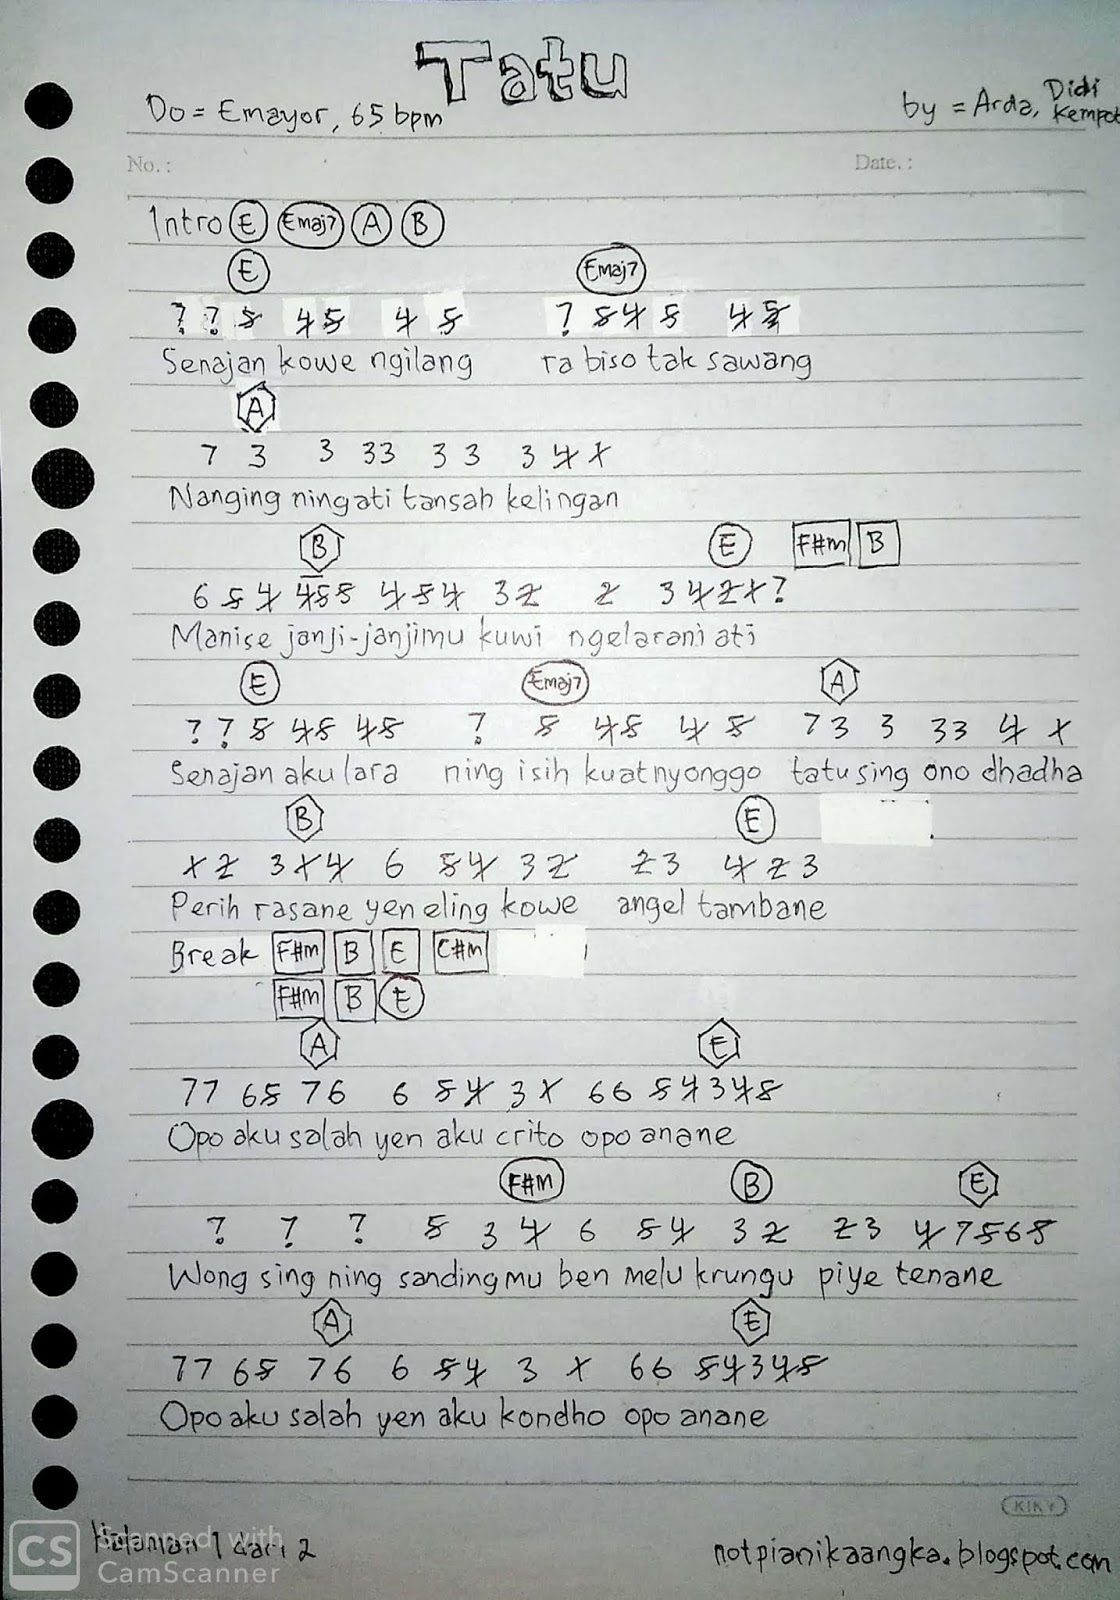 Tatu
Do = Emayor, 65 bpm
by = Arda, Didi Kempot
No. :
Date. :
Intro E Emaj7 A B
E Emaj7
? ? 5 4 5 4 5 ? 5 4 5 4 5
Senajan kowe ngilang ra biso tak sawang
A
7 3 3 33 3 3 3 4 x
Nanging ning ati tansah kelingan
B E F#m B
6 5 4 455 454 32 2 342x?
Manise janji-janjimu kuwi ngelarani ati
E Emaj7 A
? ? 5 45 45 ? 5 45 4 5 73 3 33 4 x
Senajan aku lara ning isih kuat nyonggo tatu sing ono dhadha
B E
x2 3x4 6 54 32 23 4 2 3
Perih rasane yen eling kowe angel tambane
Break F#m B E C#m
F#m B E
A E
77 65 76 6 54 3x 66 54345
Opo aku salah yen aku crito opo anane
F#m B E
? ? ? 5 3 4 6 54 32 23 47565
Wong sing ning sandingmu ben melu krungu piye tenane
A E
77 65 76 6 54 3 x 66 54345
Opo aku salah yen aku kondho opo anane
KIKY
Halaman 1 dari 2
notpianikaangka.blogspot.com
CS Scanned with
CamScanner